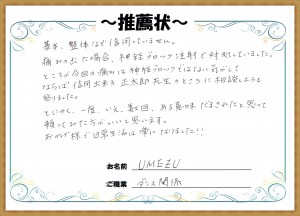 ～推薦状～
基本、整体など信用していません。
痛みの出た場合、神経ブロック注射で対処していました。
ところが今回の痛みは神経ブロックではない筋がして
ならば信用出来る正太郎先生のところに相談しようと
思りました。
とにかく、一度、いえ、数回、ある意味だまされたと思って
頼ってみた方がいいと思います。
おかげ様で日常生活は常になりました!!
お名前 UMEZU
ご職業 ダンス関係